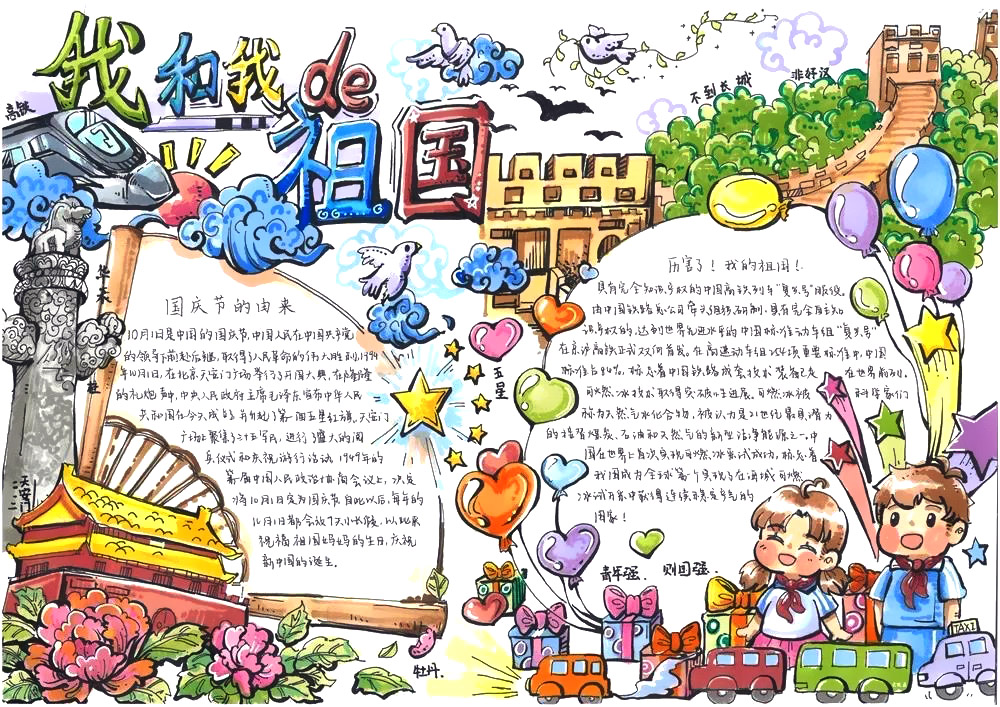 我和我de
祖国
高铁
不到长城
非好汉
华表
柱
国庆节的由来
10月1日是中国的国庆节,中国人民在中国共产党
的领导下前赴后继,取得了人民革命的伟大胜利,1949
年10月1日,在北京天安门广场举行了开国大典,在隆隆
的礼炮声中,中央人民政府主席毛泽东宣布中华人民
共和国在今天成立了并升起了第一面五星红旗,天安门
广场上聚集了三十万军民,进行了盛大的阅
兵仪式和庆祝游行活动 1949年的
第一届中国人民政治协商会议上,决定
将10月1日定为国庆节 自此以后,每年的
10月1日都会放7天小长假,以此来
祝福祖国妈妈的生日,庆祝
新中国的诞生。
天安门
牡丹.
五星
厉害了!我的祖国!
具有完全知识产权的中国高铁列车“复兴号”服役
由中国铁路总公司牵头组织研制,具有完全自主知
识产权的,达到世界先进水平的中国标准动车组“复兴号”
在京沪高铁正式双向首发。在高速动车组254项重要标准中,中国
标准占84%。标志着中国铁路成套技术装备已走在世界前列。
可燃冰技术取得突破性进展,可燃冰被科学家们
称为天然气水化合物,被认为是21世纪最具潜力
的接替煤炭、石油和天然气的新型洁净能源之一,中
国在世界上首次实现可燃冰试采成功,标志着
我国成为全球第一个实现在海域可燃
冰试开采中获得连续稳定产气的
国家!
青年强. 则国强.
TAXI